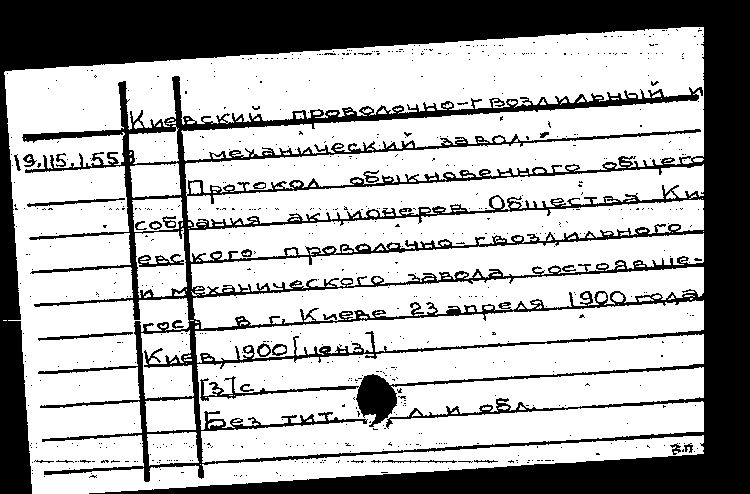 Киевский проволочно-гвоздильный и
механический завод.
19.115.1.553
Протокол обыкновенного общего
собрания акционеров Общества Ки-
евского проволочно-гвоздильного
и механического завода, состоявше-
гося в г. Киеве 23 апреля 1900 года.
Киев, 1900 [ценз].
[3]с.
Без тит. л. и обл.